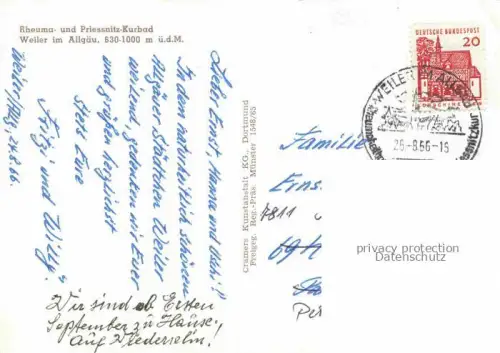 Rheuma- und Priessnitz-Kurbad
Weiler im Allgäu, 630-1000 m ü.d.M.
Lieber Ernst, Hanna und Kah!
In dem herrlich schönen
Allgäuer Städtchen Weiler
weilend, gedenken wir Euer
und grüßen herzlichst
Stets Eure
Fritzi und Willy.
Weiler/Allg, 24.8.66.
Wir sind ab Ersten
September zu Hause!
Auf Wiedersehn!
Cramers Kunstanstalt KG., Dortmund
Freigeg. Reg.-Präs. Münster 1548/65
DEUTSCHE BUNDESPOST
20
LORSCH/HESSEN
WEILER IM ALLGÄU
26-8.66-16
Familie
Erns
7811
privacy protection
Datenschutz